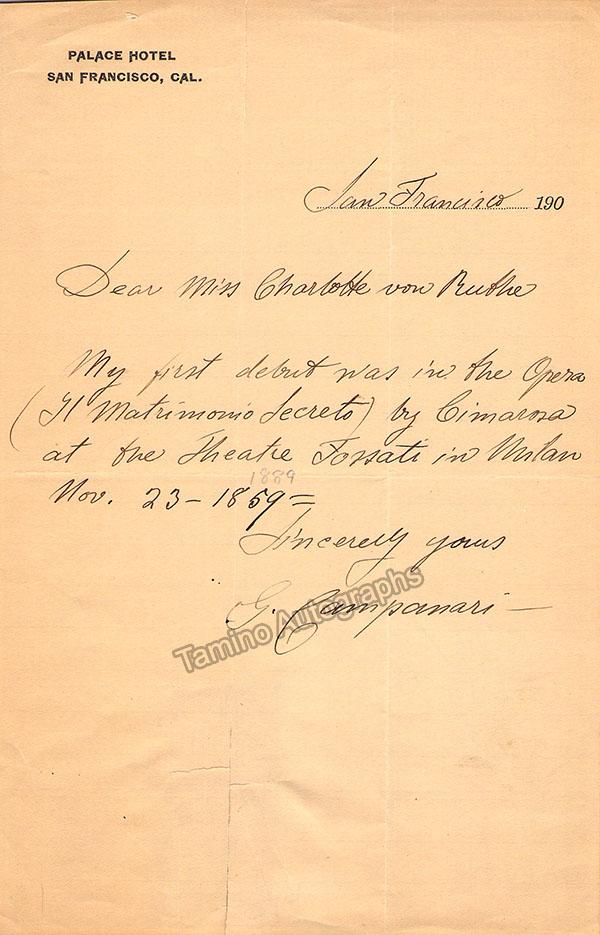 PALACE HOTEL
SAN FRANCISCO, CAL.
San Francisco 190
Dear Miss Charlotte von Ruthe
My first debut was in the Opera
(Il Matrimonio Secreto) by Cimarosa
at the Theatre Fossati in Milan
1889
Nov. 23 - 1859 =
Sincerely yours
G. Campanari -
Tamino Autographs